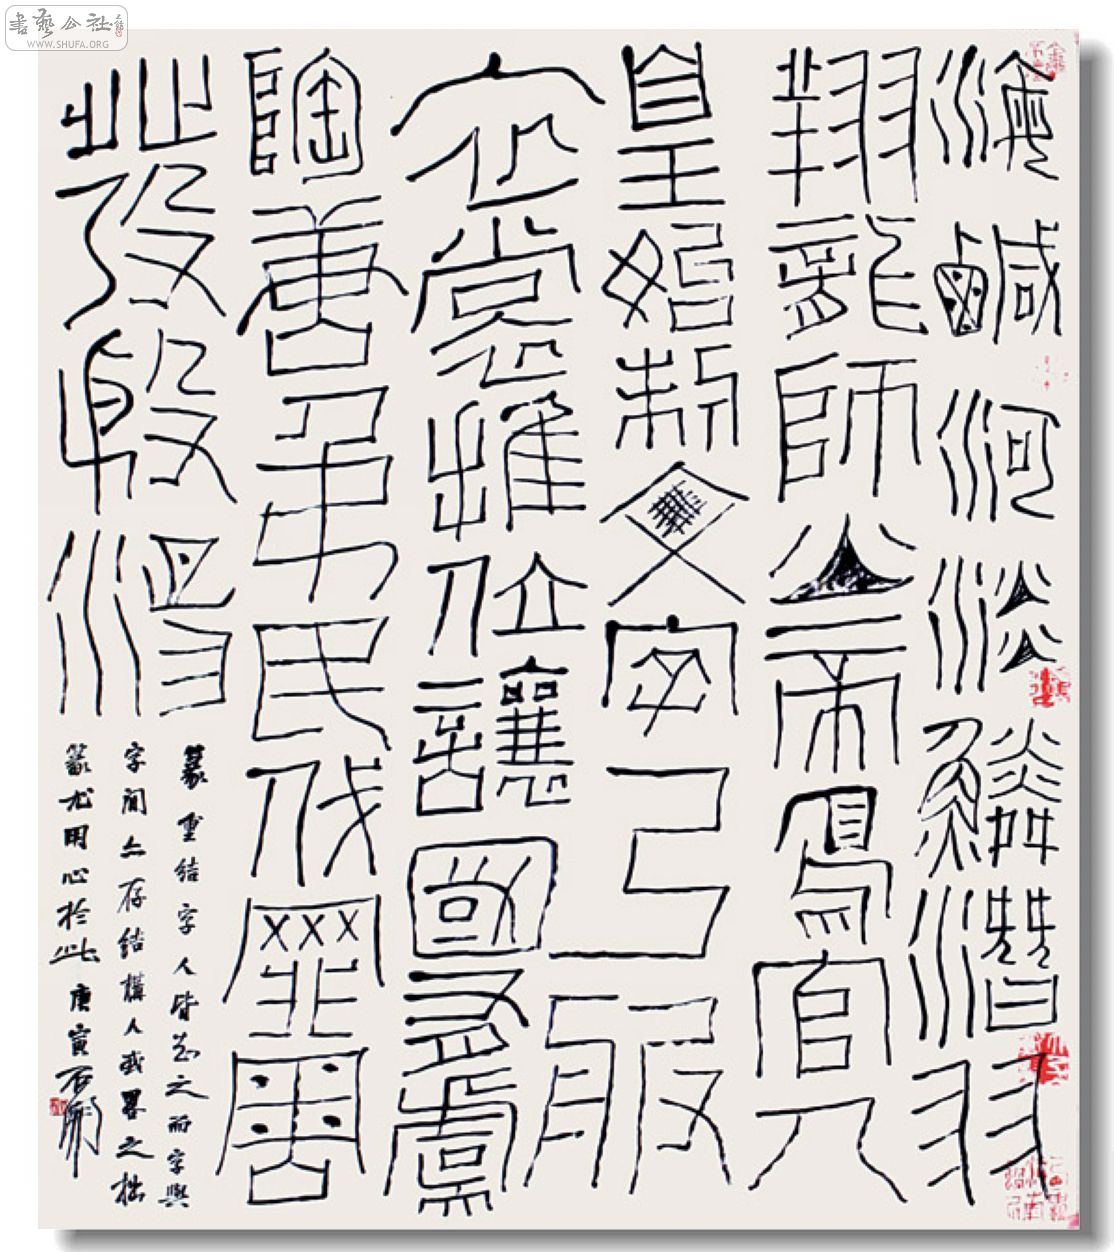 書藝公社
WWW.SHUFA.ORG
海鹹河淡鱗潛羽
翔龍師火帝鳥官人
皇始制文字乃服
衣裳推位讓國有虞
陶唐弔民伐罪周
發殷湯
篆重結字人皆知之而字與
字間亦存結構人或畧之拙
篆尤用心於此庚寅